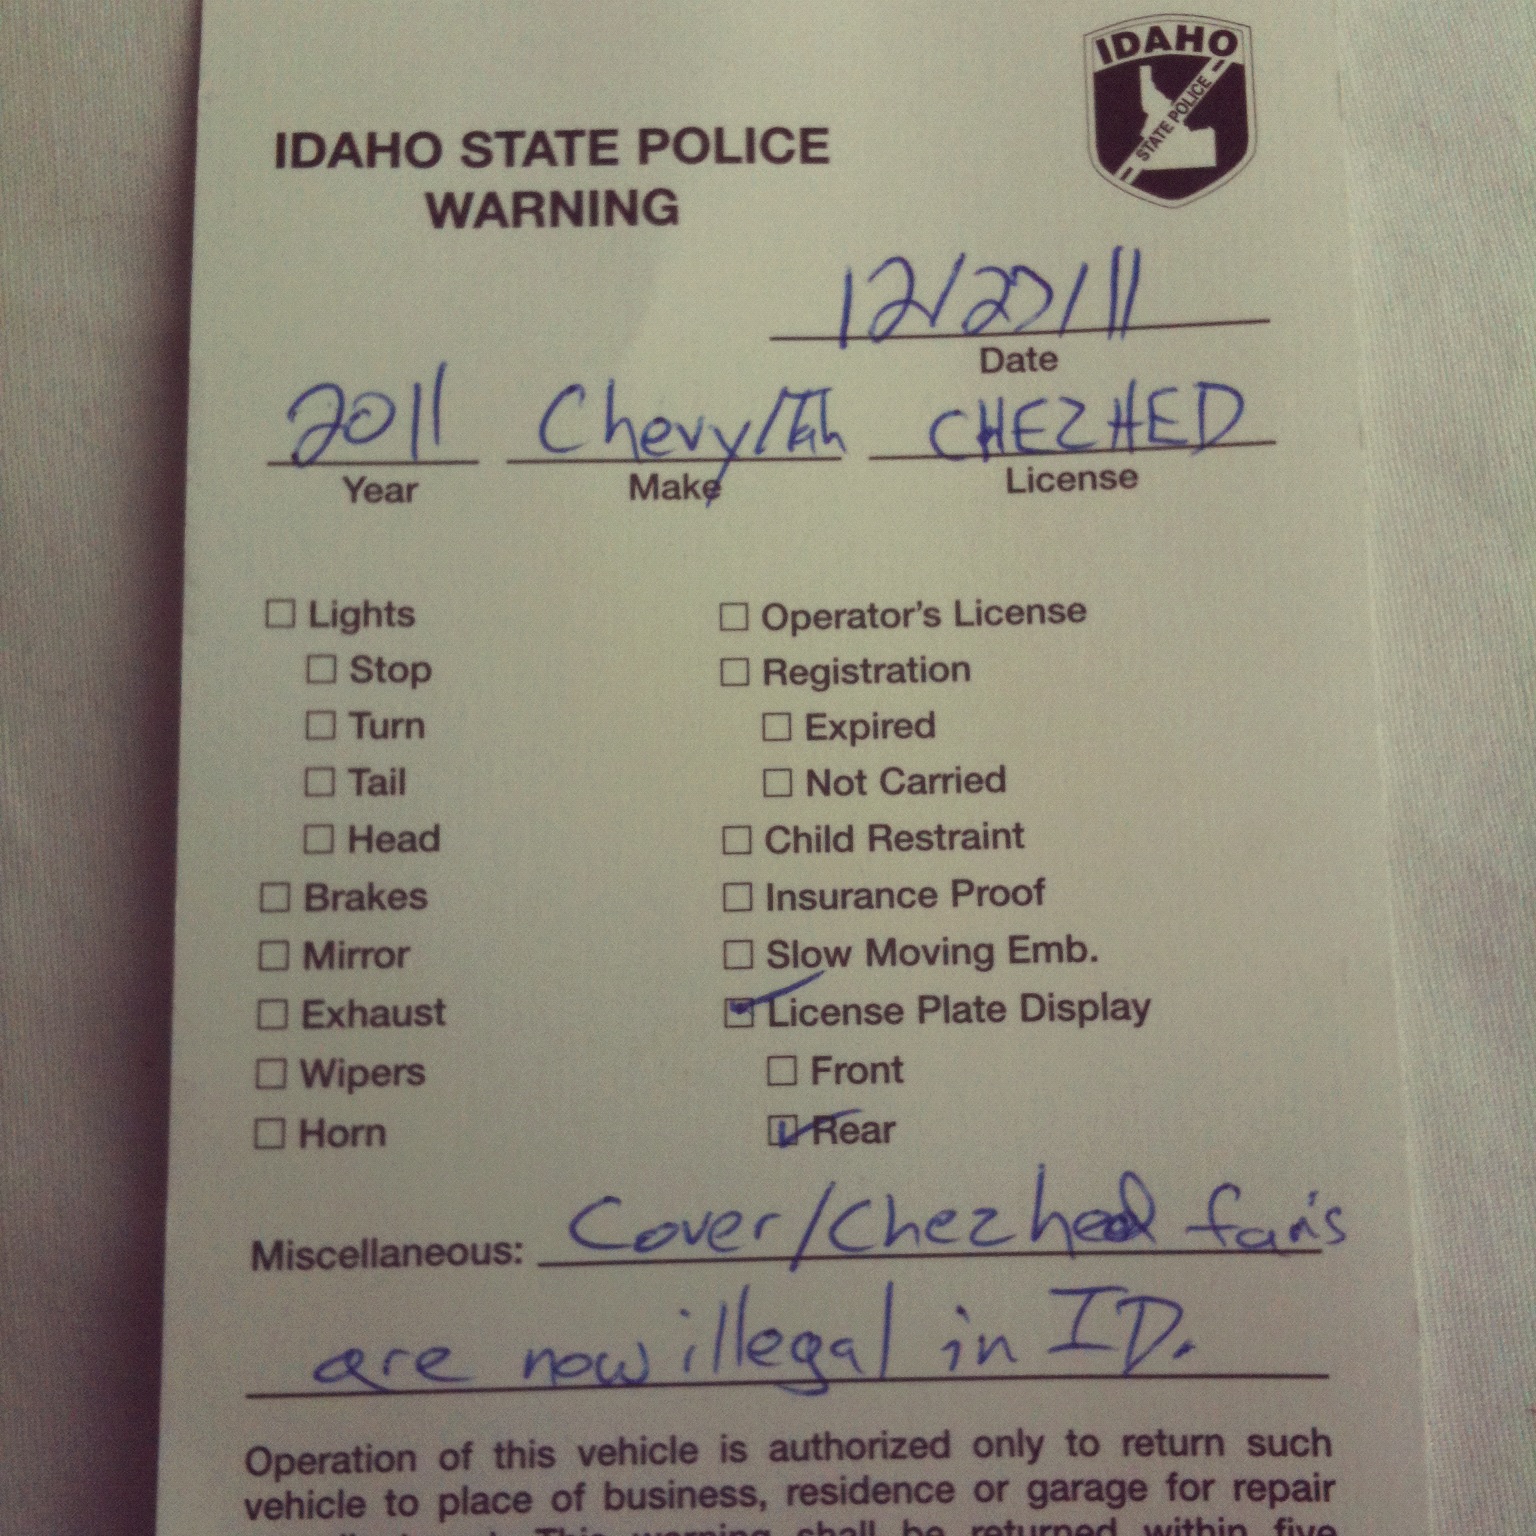 IDAHO
STATE POLICE
IDAHO STATE POLICE
WARNING
12/27/11
Date
2011 Chevy/Tah CHEZHED
Year Make License
Lights Operator's License
Stop Registration
Turn Expired
Tail Not Carried
Head Child Restraint
Brakes Insurance Proof
Mirror Slow Moving Emb.
Exhaust License Plate Display
Wipers Front
Horn Rear
Miscellaneous: Cover/Chezhed fan's
are now illegal in ID.
Operation of this vehicle is authorized only to return such
vehicle to place of business, residence or garage for repair
This warning shall be returned within five